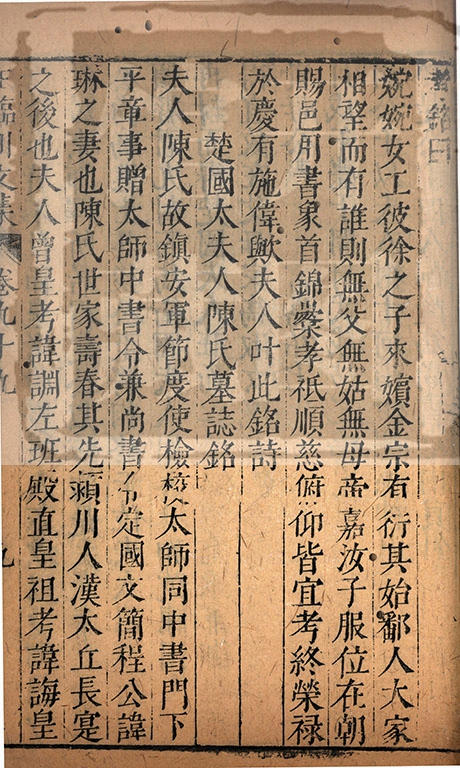 者銘曰
婉婉女工彼徐之子來嬪金宗有衍其始鄱人大家
相望而有誰則無父無姑無母帝嘉汝子服位在朝
賜邑用書象首錦橐孝祇順慈俯仰皆宜考終榮祿
於慶有施偉歟夫人叶此銘詩
楚國太夫人陳氏墓誌銘
夫人陳氏故鎮安軍節度使檢校太師同中書門下
平章事贈太師中書令兼尚書令定國文簡程公諱
琳之妻也陳氏世家壽春其先潁川人漢太丘長寔
之後也夫人曾皇考諱淵左班殿直皇祖考諱誨皇
王臨川文集 卷九十九 九